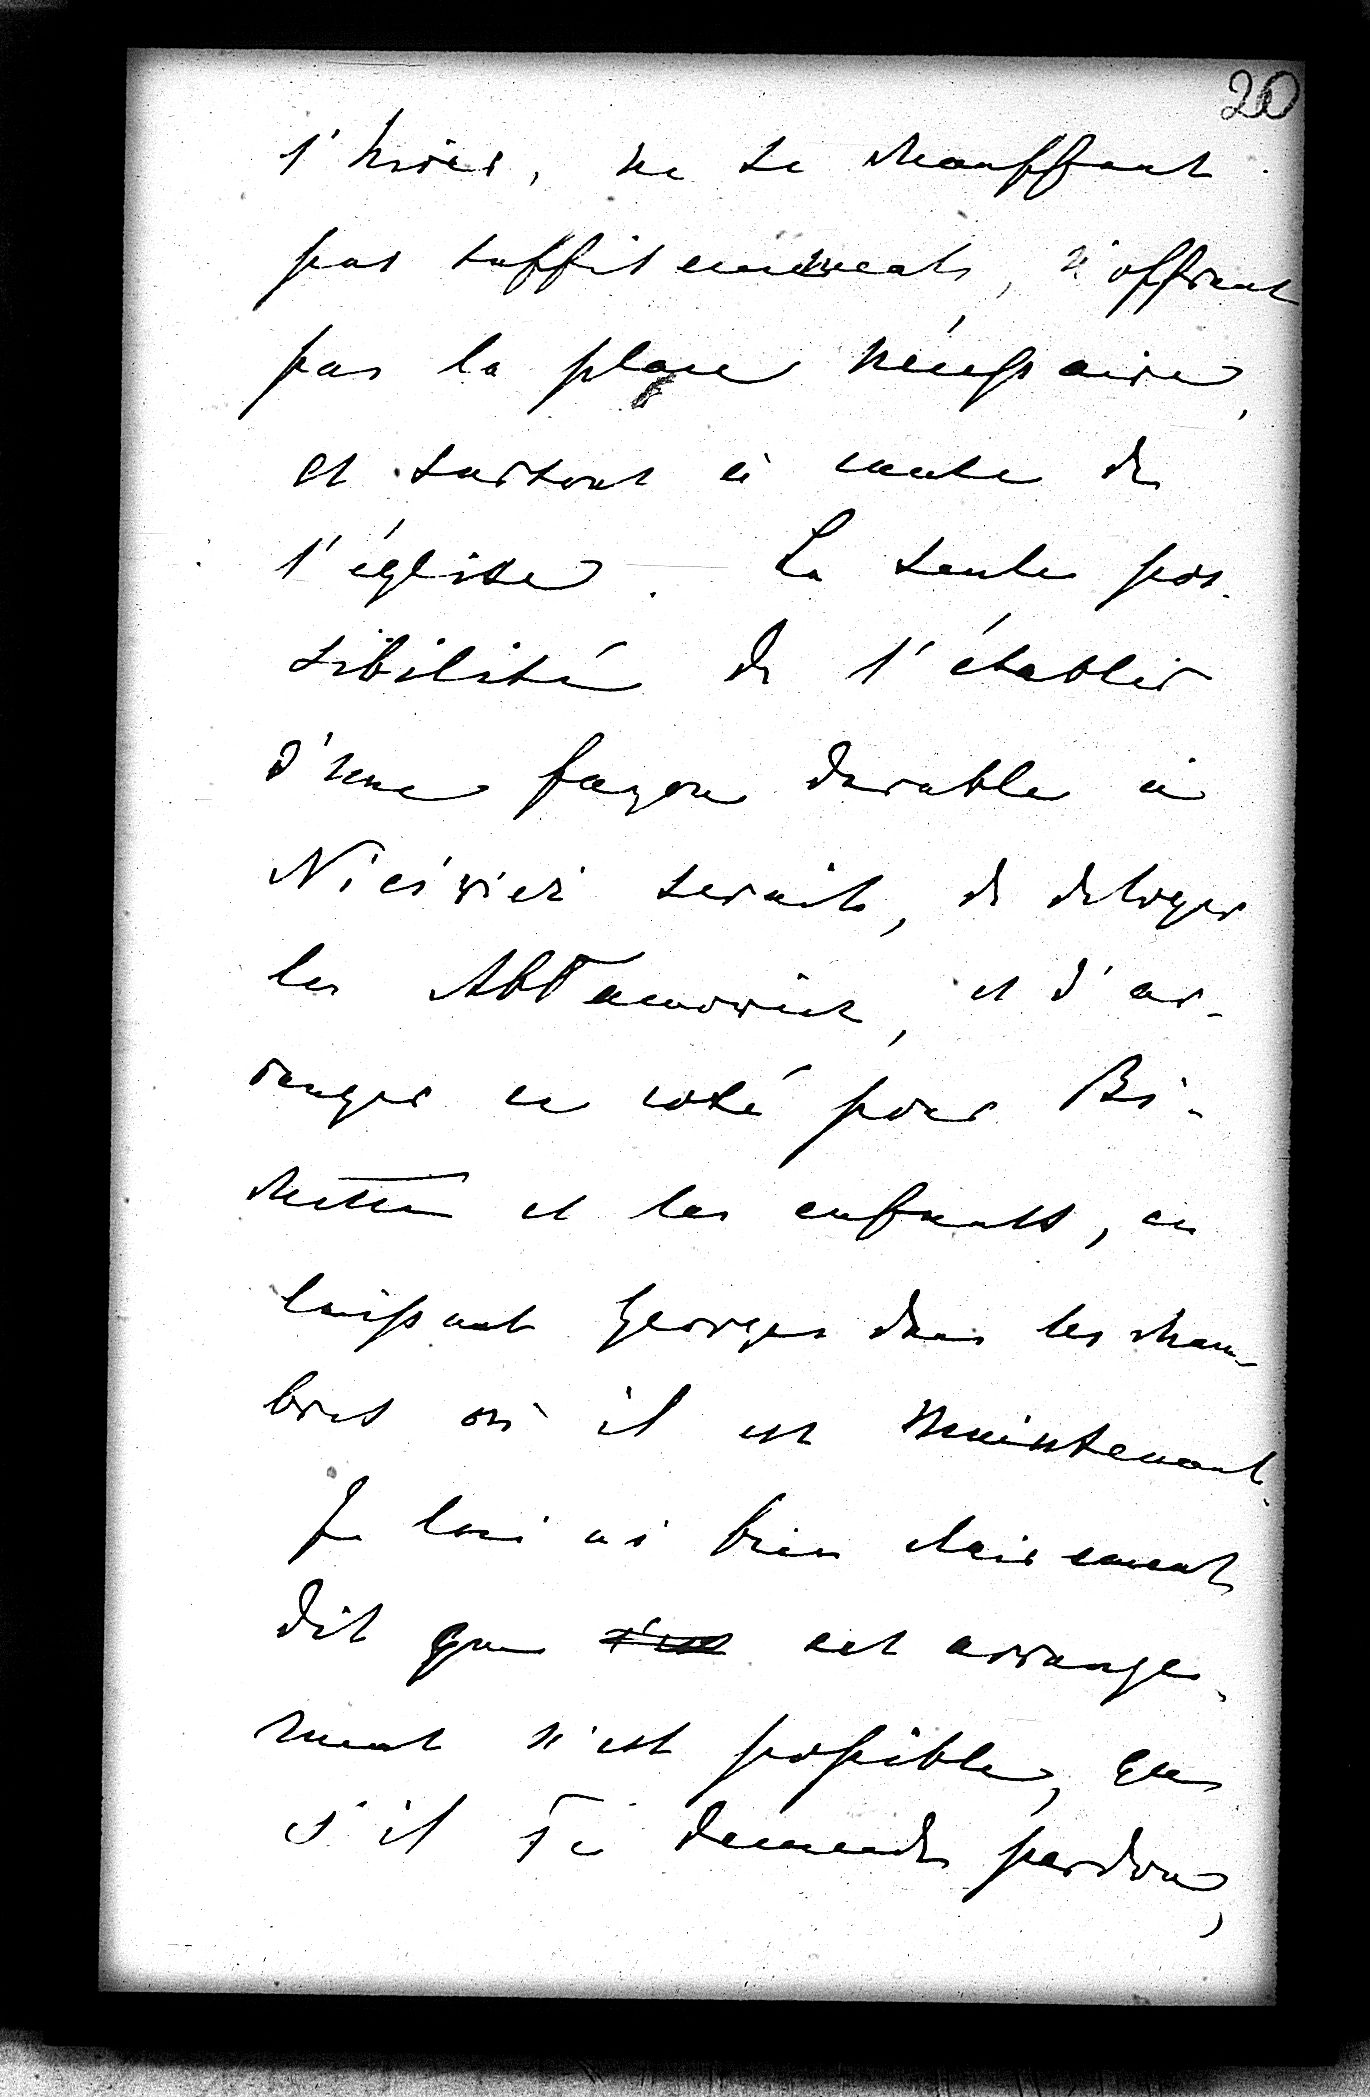 20
l'hiver, ne se chauffant
pas suffisamment, n'offrant
pas la place nécessaire,
et surtout à cause de
l'église. La seule pos-
sibilité de l'établir
d'une façon durable à
Nieśwież serait, de deloger
les Abramowicz, et d'ar-
ranger ce coté pour Bi-
chette et les enfants, en
laissant Georges dans les cham-
bres où il est maintenant.
Je lui ai bien clairement
dit que cet arrange-
ment n'est possible, que
s'il Te demande pardon,